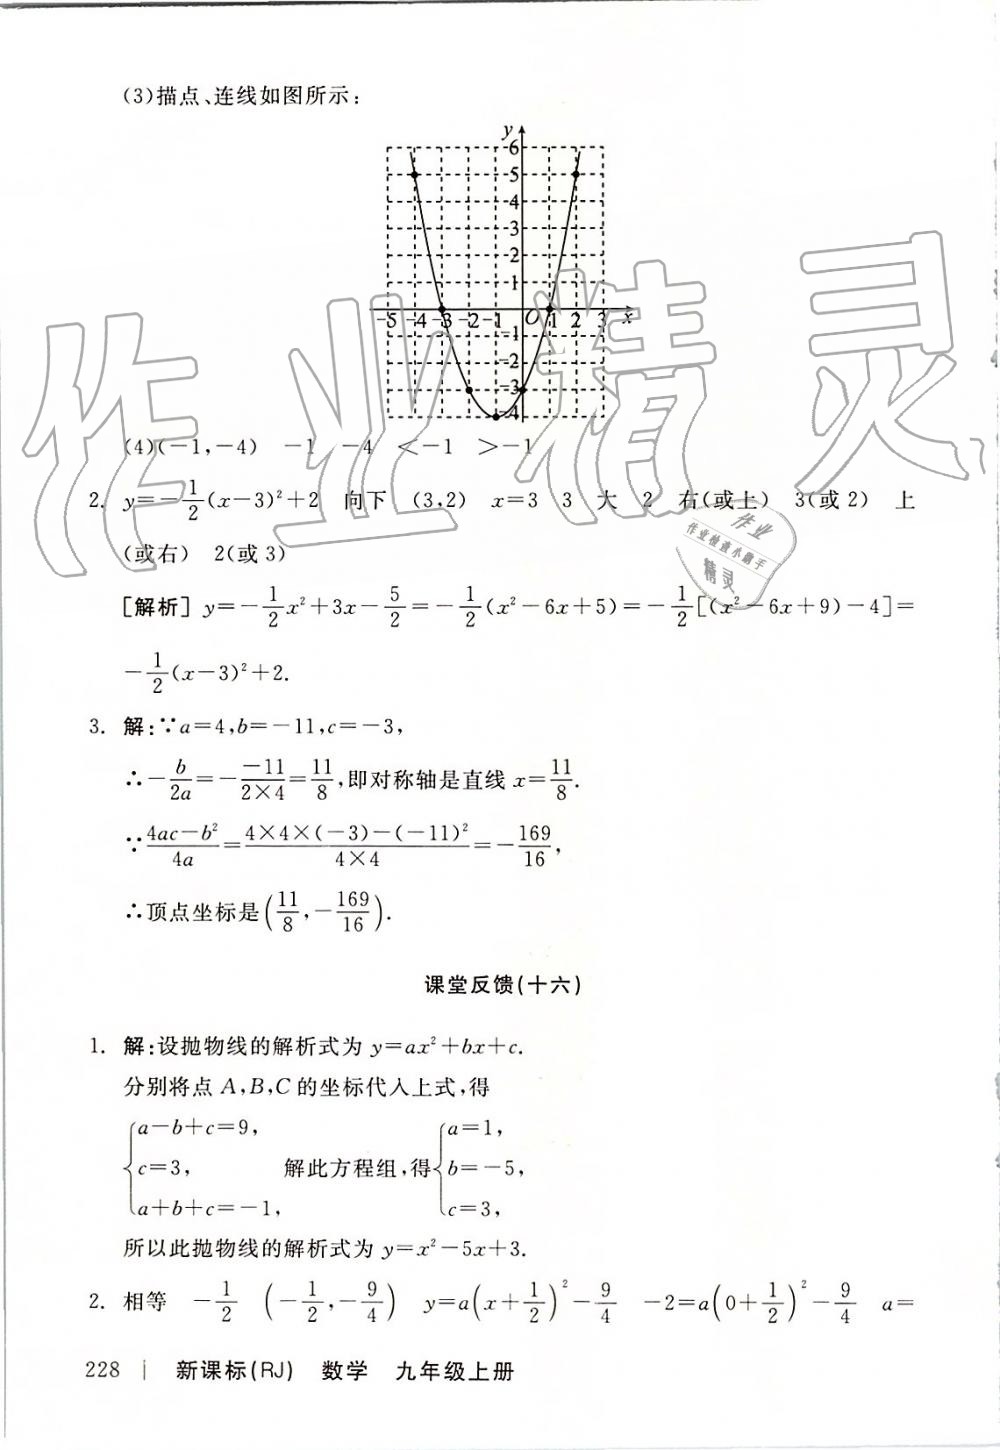 (3)描点、连线如图所示:
y
6
5
4
3
2
1
-5 -4 -3 -2 -1 O 1 2 3 x
-1
-2
-3
-4
(4)(-1,-4) -1 -4 <-1 >-1
2. y=-1/2(x-3)²+2 向下 (3,2) x=3 3 大 2 右(或上) 3(或2) 上
(或右) 2(或3)
[解析] y=-1/2x²+3x-5/2=-1/2(x²-6x+5)=-1/2[(x²-6x+9)-4]=
-1/2(x-3)²+2.
3. 解:∵a=4,b=-11,c=-3,
∴-b/2a=-(-11)/(2×4)=11/8,即对称轴是直线 x=11/8.
∵(4ac-b²)/4a=(4×4×(-3)-(-11)²)/(4×4)=-169/16,
∴顶点坐标是(11/8,-169/16).
课堂反馈(十六)
1. 解:设抛物线的解析式为 y=ax²+bx+c.
分别将点 A,B,C 的坐标代入上式,得
{a-b+c=9, {a=1,
c=3, 解此方程组,得 b=-5,
a+b+c=-1, c=3,
所以此抛物线的解析式为 y=x²-5x+3.
2. 相等 -1/2 (-1/2,-9/4) y=a(x+1/2)²-9/4 -2=a(0+1/2)²-9/4 a=
228 | 新课标(RJ) 数学 九年级上册
作业精灵
作业
作业检查小助手
精灵